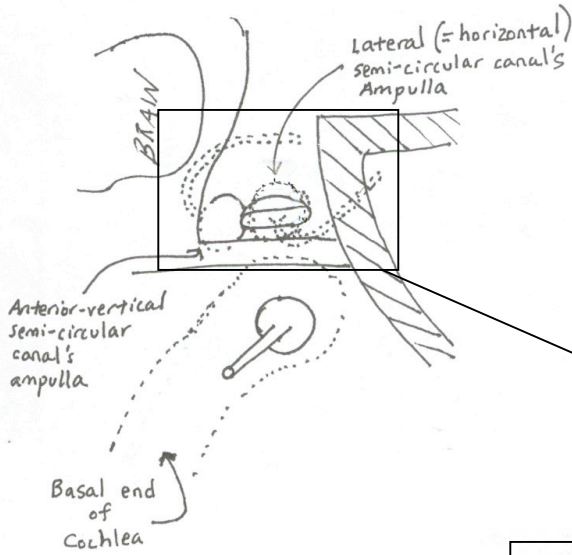 Lateral (=horizontal)
semi-circular canal's
Ampulla
BRAIN
Anterior-vertical
semi-circular
canal's
ampulla
Basal end
of
Cochlea